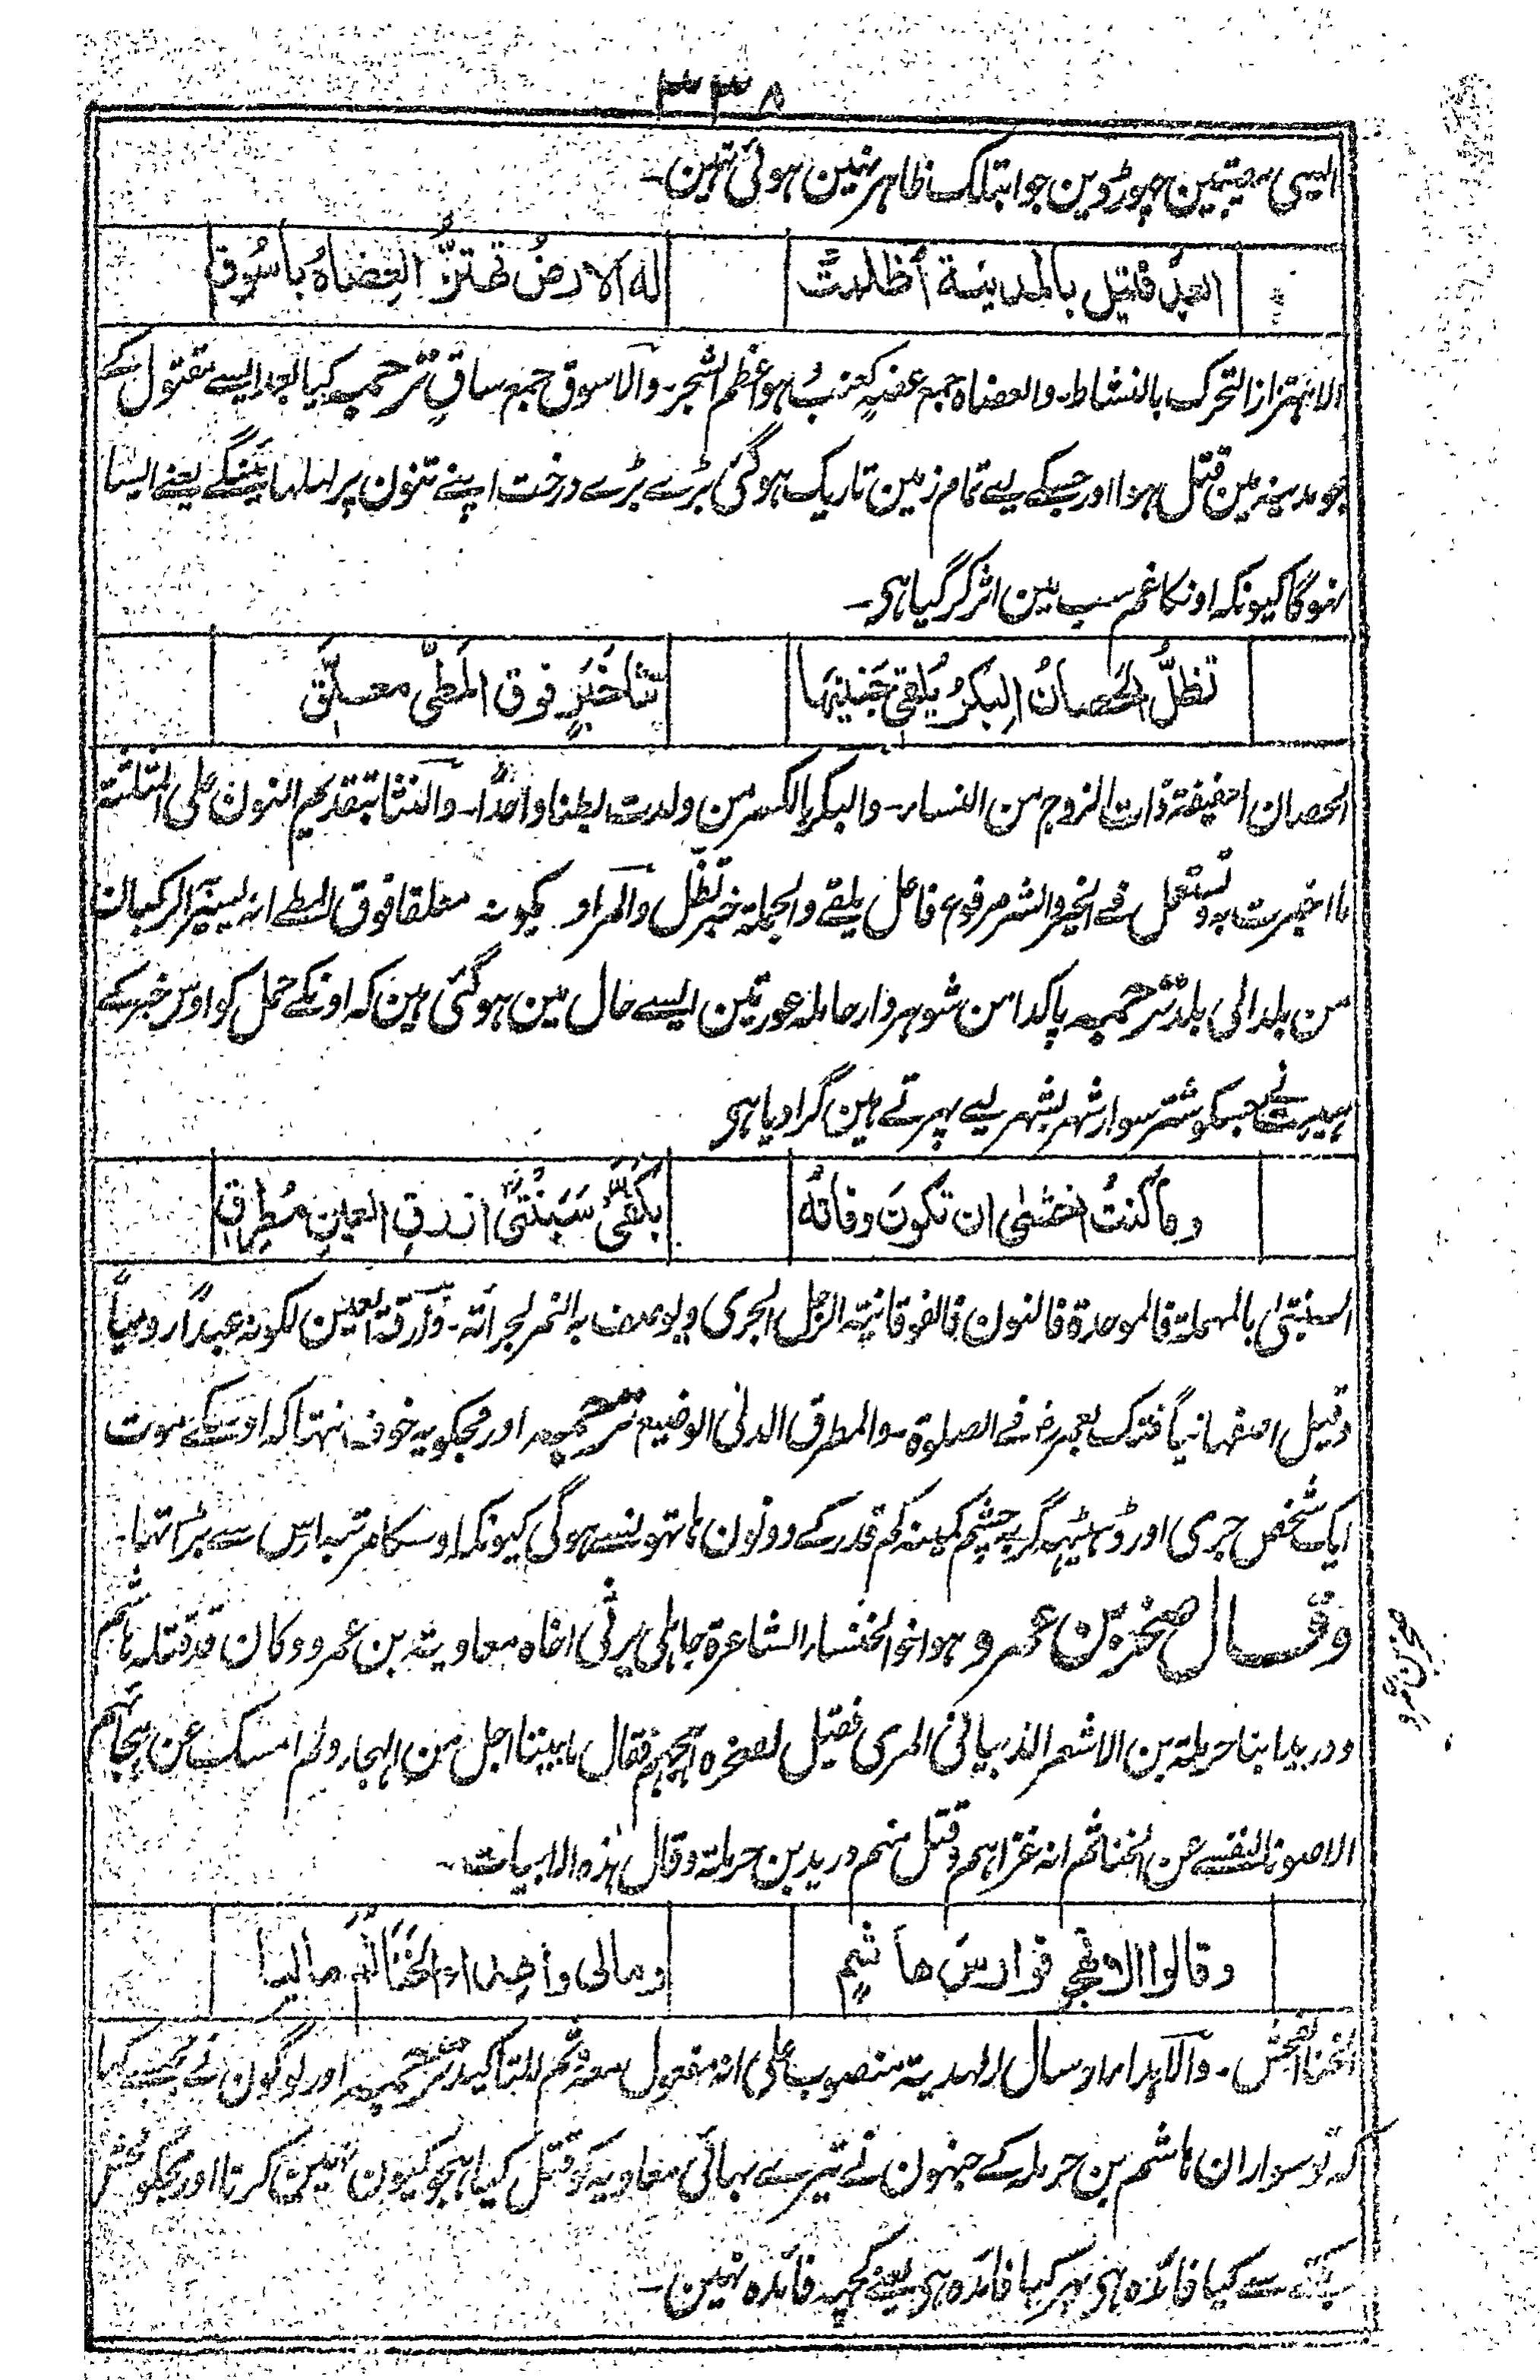 ۳۳۸
ایسی مصیبتین چھوڑدین جو ابتلک ظاہر نہین ہوئی تہین۔
ابعد قتیل بالمدینة أظلمت له الارضُ تهتزُّ العِضاهُ بأسوُق
الاہتزاز التحرک بالنشاط۔ والعضاہ جمع عضۃٍ کعنبٍ ہو اعظم الشجر۔ والاسوق جمع ساقٍ ترجمہ کیا بعد ایسے مقتول کے
جو مدینہ مین قتل ہوا اور جسکے لیے تمام زمین تاریک ہوگئی بڑے بڑے درخت اپنے تنون پر لہلہا ئینگے یعنے ایسا
نہوگا کیونکہ اونکا غم سب مین اثر کر گیا ہی۔
تظلُّ الحَصانُ البِکرُ یُلقی جَنینَہا نثا خَبَرٍ فوق المَطیّ معلّقِ
الحصان العفیفۃ ذات الزوج من النساء۔ والبکر بالکسر من ولدت بطنا واحدًا۔ والنثا بتقدیم النون علی المثلثة
ما اخبرت بہ وتستعمل فے الخیر والشر مرفوع فاعل یلقے والجملة خبر تظل والمراد بکونہ معلقا فوق المطے انہ یسیر بہ الرکبان
من بلد الی بلد ترجمہ پاکدامن شوہردار حاملہ عورتین ایسے حال مین ہوگئی ہین کہ اونکے حمل کو اوس خبر کے
پھیلنے جسکو شتر سوار شہر بشہر لیے پہرتے ہین گرادیا ہی
وماکنتُ اخشٰی ان تکونَ وفاتُه بکفّیْ سَبَنْتیً ازرقِ العینِ مُطرِقِ
السبنتیٰ بالمہملة فالموحدة فالنون فالفوقانیة الرجل الجری ویوصف بہ النمر لجرأتہ۔ وزرقة العین لکونہ عبدًا رومیاً
وقیل اصفہانیاً فتک بعمر رض فے الصلوة۔ والمطرق الدنی الوضیع ترجمہ اور مجکو یہ خوف نتہا کہ اوسکے موت
ایک شخص جری اور ڈہیٹہ گربہ چشم کمینہ کم قدر کے دونون ہاتھونسے ہوگی کیونکہ اوسکا مرتبہ اس سے بڑا تہا۔
وقال صخر بن عمرو ہو اخو الخنساء الشاعرة جاہلی یرثی اخاہ معاویة بن عمرو وکان قد قتلہ ہاشم
ودرید ابنا حرملة بن الاشعر الذبیانی المری فقیل لصخر اہجہم فقال ما بیننا اجل من الہجاء ولم امسک عن ہجائہم
الاصونا لنفسے عن الخنا ثم انہ غزاہم وقتل منہم درید بن حرملة وقال ہذہ الابیات۔
صخر بن عمرو
وقالوا الا تهجو فوارسَ هاشمٍ ومالی واهداءَ الخَنا ثُمَّ مالیا
الخنا الفحش۔ والاہداء ارسال الہدیة منصوب علی انہ مفعول معہ ثم للتاکید ترجمہ اور لوگون نے مجھسے کہا
کہ تو سواران ہاشم بن حرملہ کے جنہون نے تیرے بہائی معاویہ کو قتل کیا ہجو کیون نہین کرتا اور مجکو فحش
بکنے سے کیا فائدہ ہی پھر کیا فائدہ ہی یعنے کچہہ فائدہ نہین۔